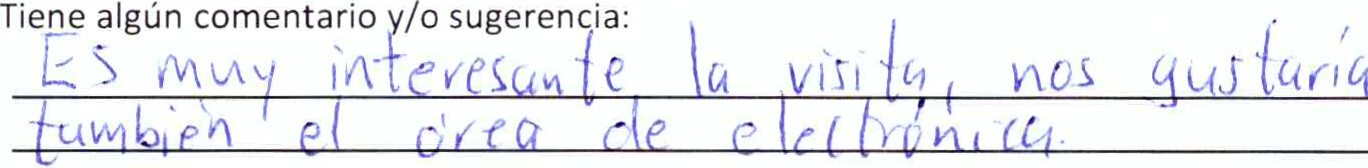 Tiene algún comentario y/o sugerencia:
Es muy interesante la visita, nos gustaría
también el área de electrónica.